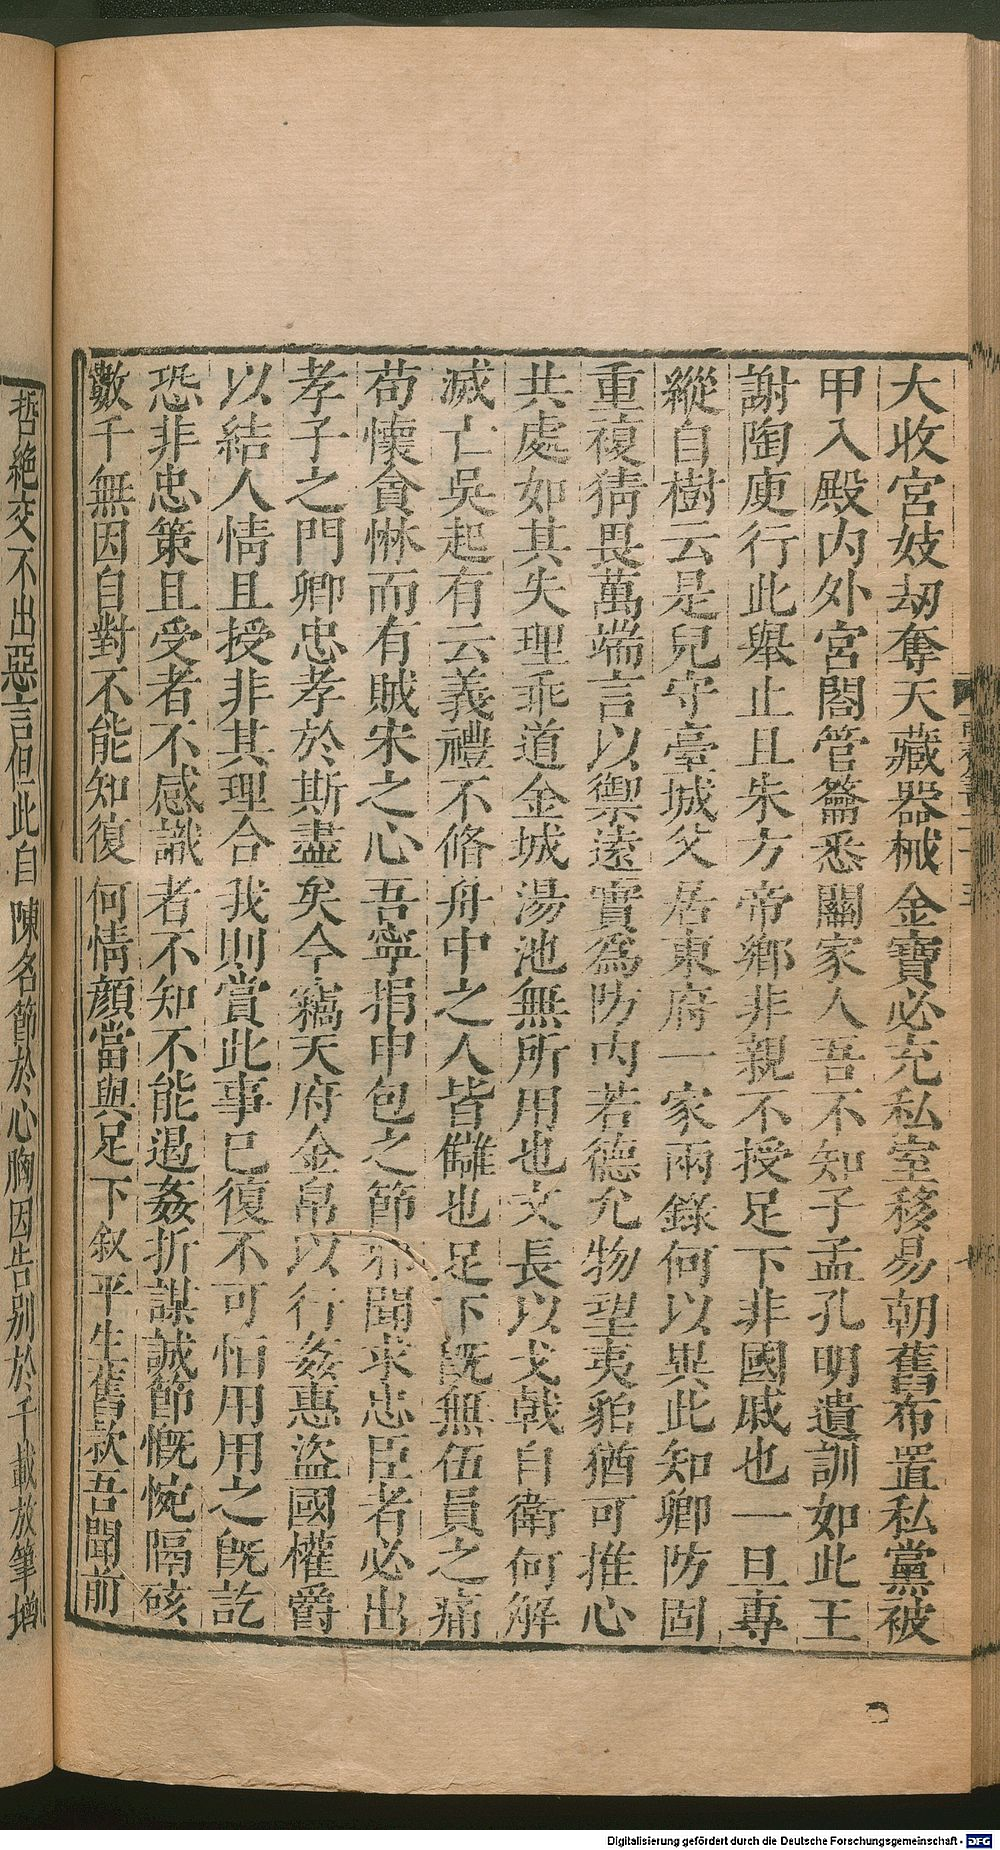 大收宮妓刼奪天藏器械金寶必充私室移易朝舊布置私黨被
甲入殿内外宮閤管籥悉關家人吾不知子孟孔明遺訓如此王
謝陶庾行此舉止且朱方帝鄉非親不授足下非國戚也一旦專
縱自樹云是兒守臺城父居東府一家兩錄何以異此知卿防固
重複猜畏萬端言以禦遠實為防内若德允物望夷貊猶可推心
共處如其失理乖道金城湯池無所用也文長以戈戟自衛何解
滅亡吳起有云義禮不脩舟中之人皆讎也足下旣無伍員之痛
苟懷貪惏而有賊宋之心吾寧捐申包之節邪聞求忠臣者必出
孝子之門卿忠孝於斯盡矣今竊天府金帛以行姦惠盜國權爵
以結人情且授非其理合我則賞此事已復不可恒用用之旣訖
恐非忠策且受者不感識者不知不能遏姦折謀誠節慨惋隔硋
數千無因自對不能知復何情顏當與足下敘平生舊款吾聞前
哲絶交不出惡言但此自陳名節於心胸因告別於千載放筆增
Digitalisierung gefördert durch die Deutsche Forschungsgemeinschaft - DFG